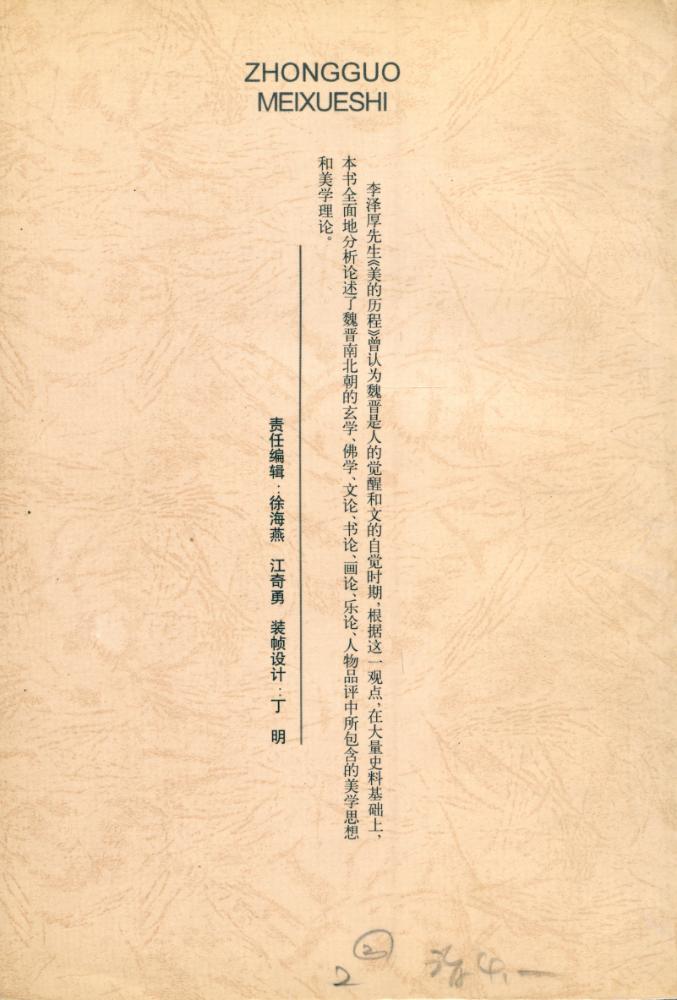 ZHONGGUO
MEIXUESHI
李泽厚先生《美的历程》曾认为魏晋是人的觉醒和文的自觉时期，根据这一观点，在大量史料基础上，
本书全面地分析论述了魏晋南北朝的玄学、佛学、文论、书论、画论、乐论、人物品评中所包含的美学思想
和美学理论。
责任编辑：徐海燕 江奇勇 装帧设计：丁 明
②
2